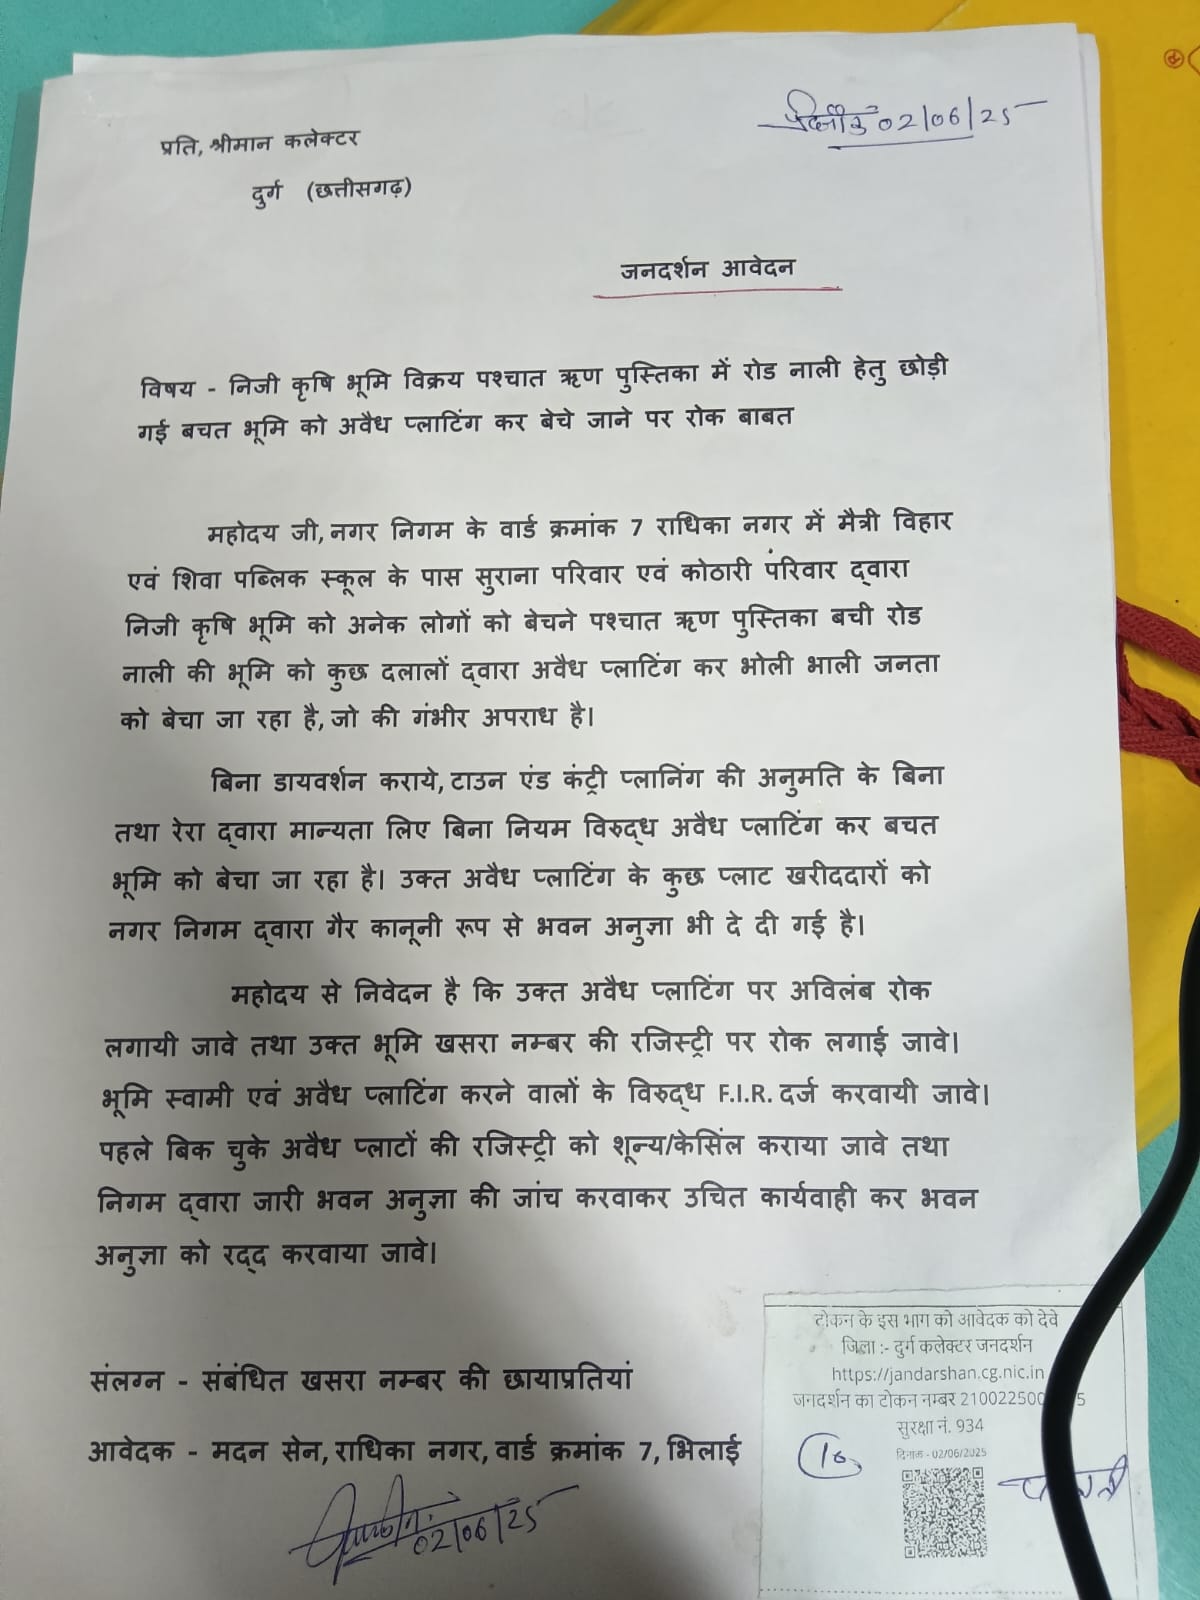 दिनाँक 02/06/25
प्रति, श्रीमान कलेक्टर
दुर्ग (छत्तीसगढ़)
जनदर्शन आवेदन
विषय - निजी कृषि भूमि विक्रय पश्चात ऋण पुस्तिका में रोड नाली हेतु छोड़ी
गई बचत भूमि को अवैध प्लाटिंग कर बेचे जाने पर रोक बाबत
महोदय जी, नगर निगम के वार्ड क्रमांक 7 राधिका नगर में मैत्री विहार
एवं शिवा पब्लिक स्कूल के पास सुराना परिवार एवं कोठारी परिवार द्वारा
निजी कृषि भूमि को अनेक लोगों को बेचने पश्चात ऋण पुस्तिका बची रोड
नाली की भूमि को कुछ दलालों द्वारा अवैध प्लाटिंग कर भोली भाली जनता
को बेचा जा रहा है, जो की गंभीर अपराध है।
बिना डायवर्शन कराये, टाउन एंड कंट्री प्लानिंग की अनुमति के बिना
तथा रेरा द्वारा मान्यता लिए बिना नियम विरुद्ध अवैध प्लाटिंग कर बचत
भूमि को बेचा जा रहा है। उक्त अवैध प्लाटिंग के कुछ प्लाट खरीददारों को
नगर निगम द्वारा गैर कानूनी रूप से भवन अनुज्ञा भी दे दी गई है।
महोदय से निवेदन है कि उक्त अवैध प्लाटिंग पर अविलंब रोक
लगायी जावे तथा उक्त भूमि खसरा नम्बर की रजिस्ट्री पर रोक लगाई जावे।
भूमि स्वामी एवं अवैध प्लाटिंग करने वालों के विरुद्ध F.I.R. दर्ज करवायी जावे।
पहले बिक चुके अवैध प्लाटों की रजिस्ट्री को शून्य/केसिंल कराया जावे तथा
निगम द्वारा जारी भवन अनुज्ञा की जांच करवाकर उचित कार्यवाही कर भवन
अनुज्ञा को रद्द करवाया जावे।
संलग्न - संबंधित खसरा नम्बर की छायाप्रतियां
आवेदक - मदन सेन, राधिका नगर, वार्ड क्रमांक 7, भिलाई
02/06/25
टोकन के इस भाग को आवेदक को देवे
जिला :- दुर्ग कलेक्टर जनदर्शन
https://jandarshan.cg.nic.in
जनदर्शन का टोकन नम्बर
सुरक्षा नं. 934
दिनांक - 02/06/2025